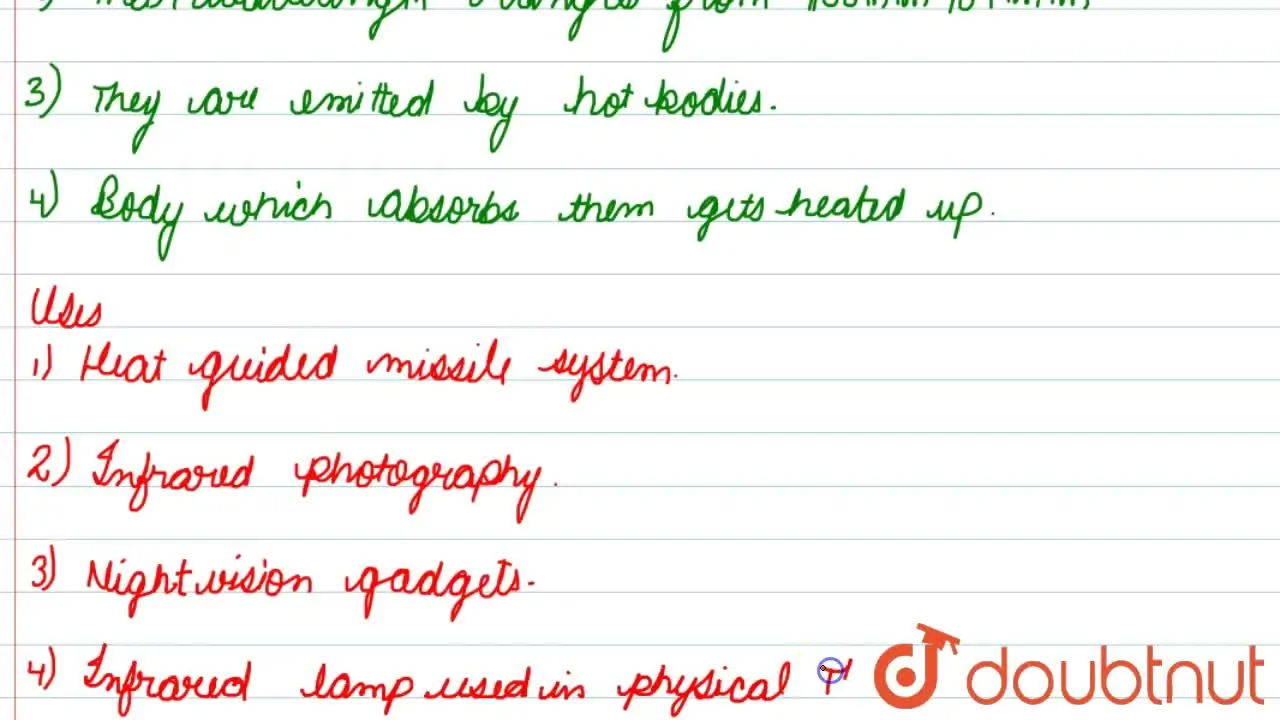 ranges from
3) They are emitted by hot bodies.
4) Body which absorbs them gets heated up.
Uses
1) Heat guided missile system.
2) Infrared photography.
3) Night vision gadgets.
4) Infrared lamp used in physical
doubtnut